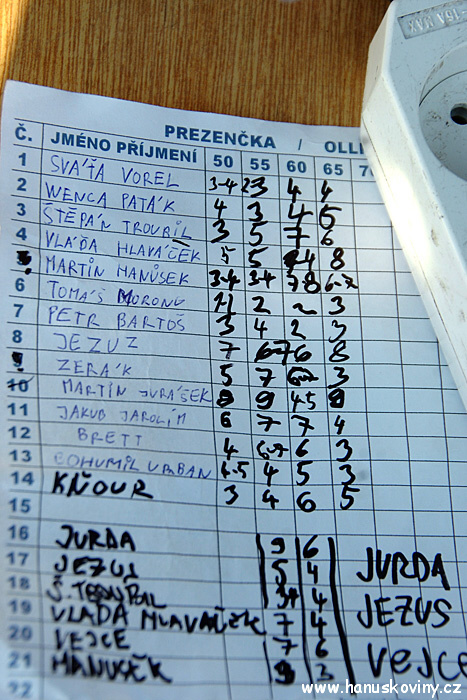 16A MAX
PREZENČKA / OLLI
Č. JMÉNO PŘÍJMENÍ 50 55 60 65 7
1 SVÁŤA VOREL 3-4 3 4 4
2 WENCA PATÁK 4 3 4 6
3 ŠTĚPÁN TROUBIL 3 5 7 6
4 VLÁĎA HLAVÁČEK 5 5 4 8
MARTIN HANUSEK 3-4 3-4 78 6-7
6 TOMÁŠ MORONG 11 2 2 3
7 PETR BARTOŠ 3 4 2 3
8 JEZUZ 7 6-7 6 8
ZERÁK 5 7 6-7 3
10 MARTIN JURÁŠEK 9 4-5
11 JAKUB JAROLÍM 6 7 7 4
12 BRETT 4 6-7 6 3
13 BOHUMIL URBAN 4-5 4 5 3
14 KŇOUR 3 4 6 5
15
16 JURDA 9 6 JURDA
17 JEZUS 5 4
18 Š. 4 JEZUS
19 VLADA HLAVAČEK 7 4
20 VEJCE 7 6 VEJCE
21 HANUSEK 9 3
22
www.hanuskoviny.cz